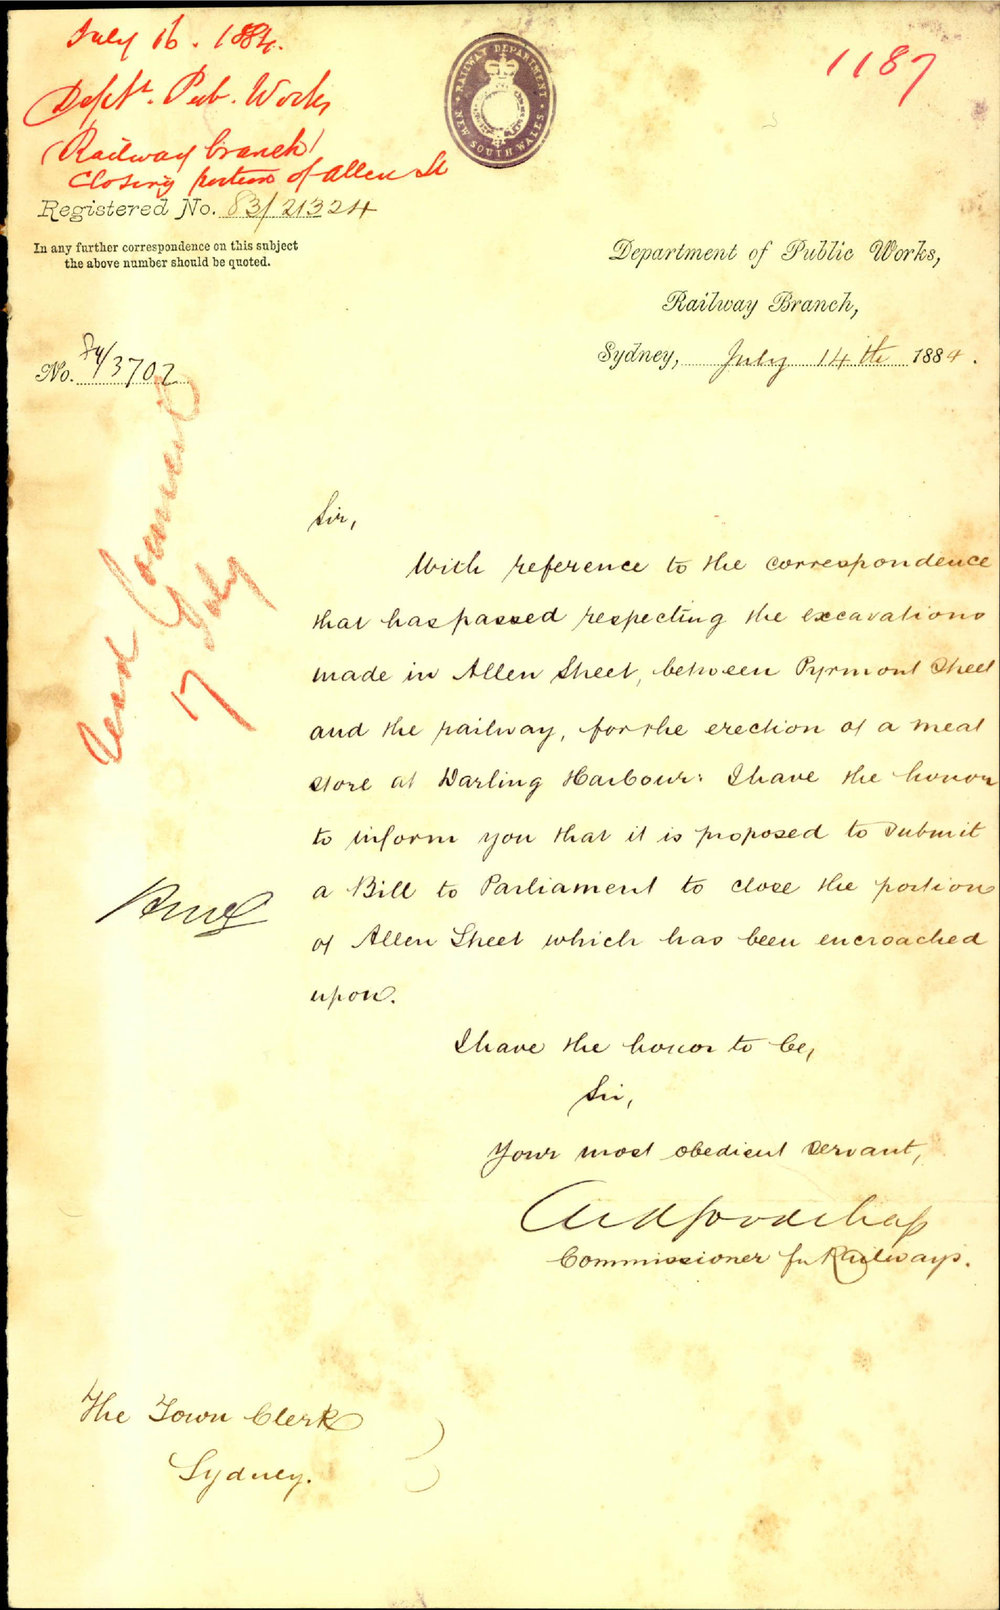 July 16. 1884.
1187
RAILWAY DEPARTMENT
NEW SOUTH WALES
Dept. Pub. Works
(Railway branch)
Closing portion of Allen St
Registered No. 83/21324
In any further correspondence on this subject
the above number should be quoted.
Department of Public Works,
Railway Branch,
Sydney, July 14th 1884.
No. 84/3702
17 July
Sir,
With reference to the correspondence
that has passed respecting the excavations
made in Allen Street, between Pyrmont Street
and the railway, for the erection of a meat
store at Darling Harbour: I have the honor
to inform you that it is proposed to submit
a Bill to Parliament to close the portion
of Allen Street which has been encroached
upon.
I have the honor to be,
Sir,
Your most obedient servant,
Chas A Goodchap
Commissioner for Railways.
The Town Clerk
Sydney.